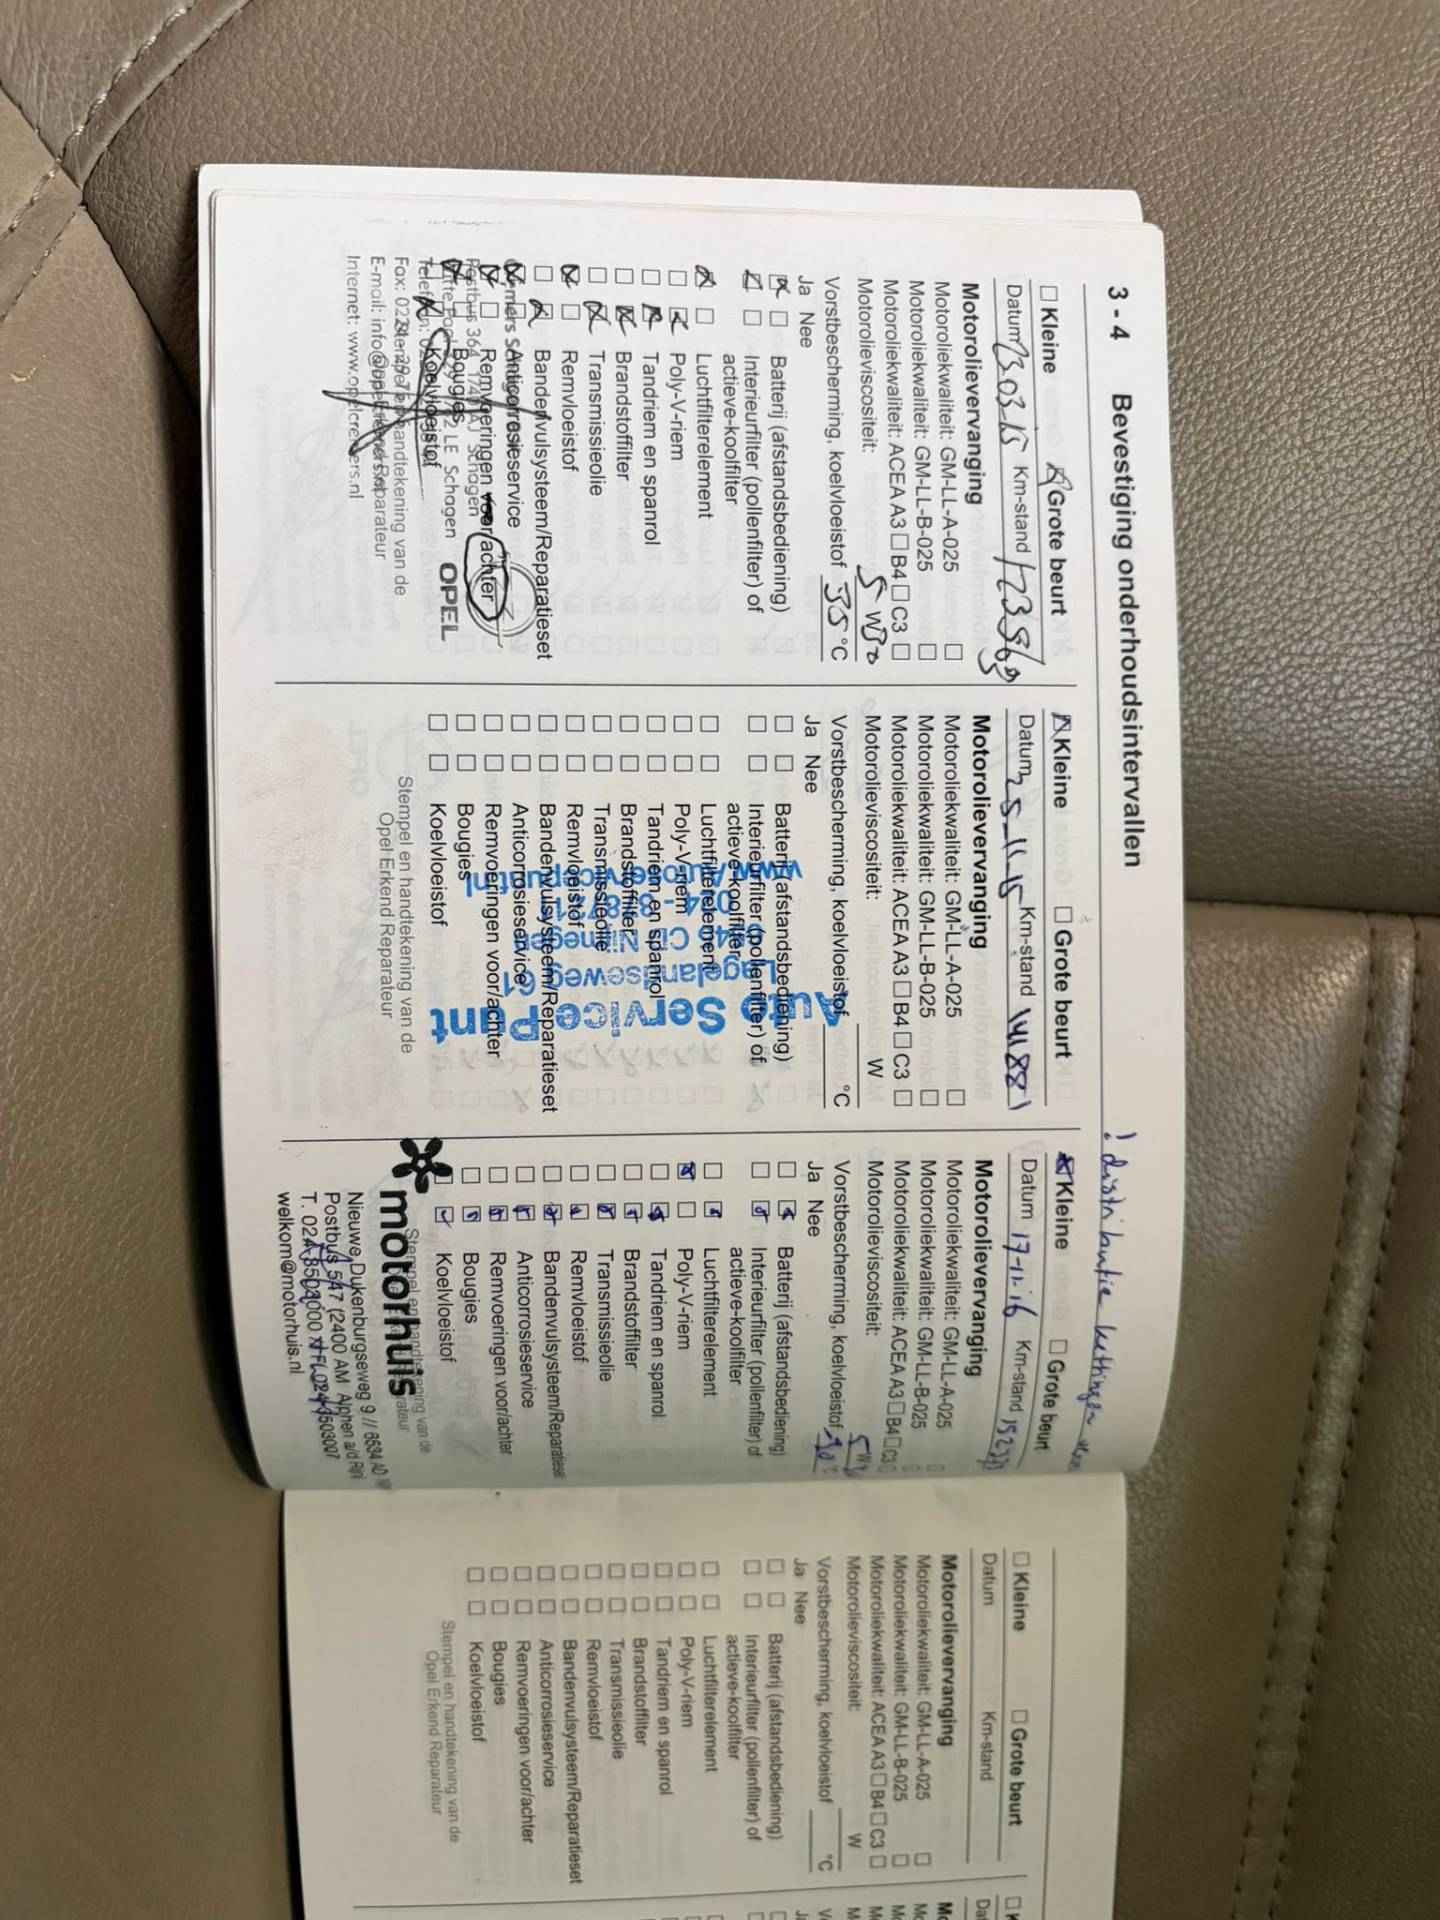 3 - 4 Bevestiging onderhoudsintervallen
☐ Kleine ☒ Grote beurt
Datum 23-03-15 Km-stand
Motorolievervanging
Motoroliekwaliteit: GM-LL-A-025 ☐
Motoroliekwaliteit: GM-LL-B-025 ☐
Motoroliekwaliteit: ACEA A3 ☐ B4 ☐ C3 ☐
Motorolieviscositeit: 5 W 30
Vorstbescherming, koelvloeistof 35 °C
Ja Nee
☒ ☐ Batterij (afstandsbediening)
☒ ☐ Interieurfilter (pollenfilter) of
actieve-koolfilter
☒ ☐ Luchtfilterelement
☐ ☒ Poly-V-riem
☐ ☒ Tandriem en spanrol
☐ ☒ Brandstoffilter
☐ ☒ Transmissieolie
☒ ☐ Remvloeistof
☐ ☒ Bandenvulsysteem/Reparatieset
☒ ☐ Anticorrosieservice
☒ ☐ Remvoeringen voor/achter
☒ ☐ Bougies
☐ ☒ Koelvloeistof
Stempel en handtekening van de
Opel Erkend Reparateur
Schagen
Postbus 364 1740 AJ Schagen
LE Schagen
OPEL
Telefoon:
Fax: 0224
E-mail: info@opelcremers.nl
Internet: www.opelcremers.nl
☒ Kleine ☐ Grote beurt
Datum 25-11-15 Km-stand 141881
Motorolievervanging
Motoroliekwaliteit: GM-LL-A-025 ☐
Motoroliekwaliteit: GM-LL-B-025 ☐
Motoroliekwaliteit: ACEA A3 ☐ B4 ☐ C3 ☐
Motorolieviscositeit: W
Vorstbescherming, koelvloeistof °C
Ja Nee
☐ ☐ Batterij (afstandsbediening)
☐ ☐ Interieurfilter (pollenfilter) of
actieve-koolfilter
☐ ☐ Luchtfilterelement
☐ ☐ Poly-V-riem
☐ ☐ Tandriem en spanrol
☐ ☐ Brandstoffilter
☐ ☐ Transmissieolie
☐ ☐ Remvloeistof
☐ ☐ Bandenvulsysteem/Reparatieset
☐ ☐ Anticorrosieservice
☐ ☐ Remvoeringen voor/achter
☐ ☐ Bougies
☐ ☐ Koelvloeistof
Stempel en handtekening van de
Opel Erkend Reparateur
Auto Service Punt
Lagelandseweg 61
Nijmegen
! distributie ketting
☒ Kleine ☐ Grote beurt
Datum 17-11-16 Km-stand
Motorolievervanging
Motoroliekwaliteit: GM-LL-A-025
Motoroliekwaliteit: GM-LL-B-025
Motoroliekwaliteit: ACEA A3 ☐ B4 ☐ C3
Motorolieviscositeit: 5 W
Vorstbescherming, koelvloeistof
Ja Nee
☐ ☒ Batterij (afstandsbediening)
☐ ☒ Interieurfilter (pollenfilter) of
actieve-koolfilter
☐ ☒ Luchtfilterelement
☒ ☐ Poly-V-riem
☐ ☒ Tandriem en spanrol
☐ ☒ Brandstoffilter
☐ ☒ Transmissieolie
☐ ☒ Remvloeistof
☐ ☒ Bandenvulsysteem/Reparatieset
☐ ☒ Anticorrosieservice
☐ ☒ Remvoeringen voor/achter
☐ ☒ Bougies
☐ ☒ Koelvloeistof
Stempel en handtekening van de
motorhuis
Nieuwe Dukenburgseweg 9 // 6534 AD
Postbus 547 (2400 AM Alphen a/d Rijn
T. 024-3503000 // F. 024-3503007
welkom@motorhuis.nl
☐ Kleine ☐ Grote beurt
Datum Km-stand
Motorolievervanging
Motoroliekwaliteit: GM-LL-A-025 ☐
Motoroliekwaliteit: GM-LL-B-025 ☐
Motoroliekwaliteit: ACEA A3 ☐ B4 ☐ C3 ☐
Motorolieviscositeit: W
Vorstbescherming, koelvloeistof °C
Ja Nee
☐ ☐ Batterij (afstandsbediening)
☐ ☐ Interieurfilter (pollenfilter) of
actieve-koolfilter
☐ ☐ Luchtfilterelement
☐ ☐ Poly-V-riem
☐ ☐ Tandriem en spanrol
☐ ☐ Brandstoffilter
☐ ☐ Transmissieolie
☐ ☐ Remvloeistof
☐ ☐ Bandenvulsysteem/Reparatieset
☐ ☐ Anticorrosieservice
☐ ☐ Remvoeringen voor/achter
☐ ☐ Bougies
☐ ☐ Koelvloeistof
Stempel en handtekening van de
Opel Erkend Reparateur